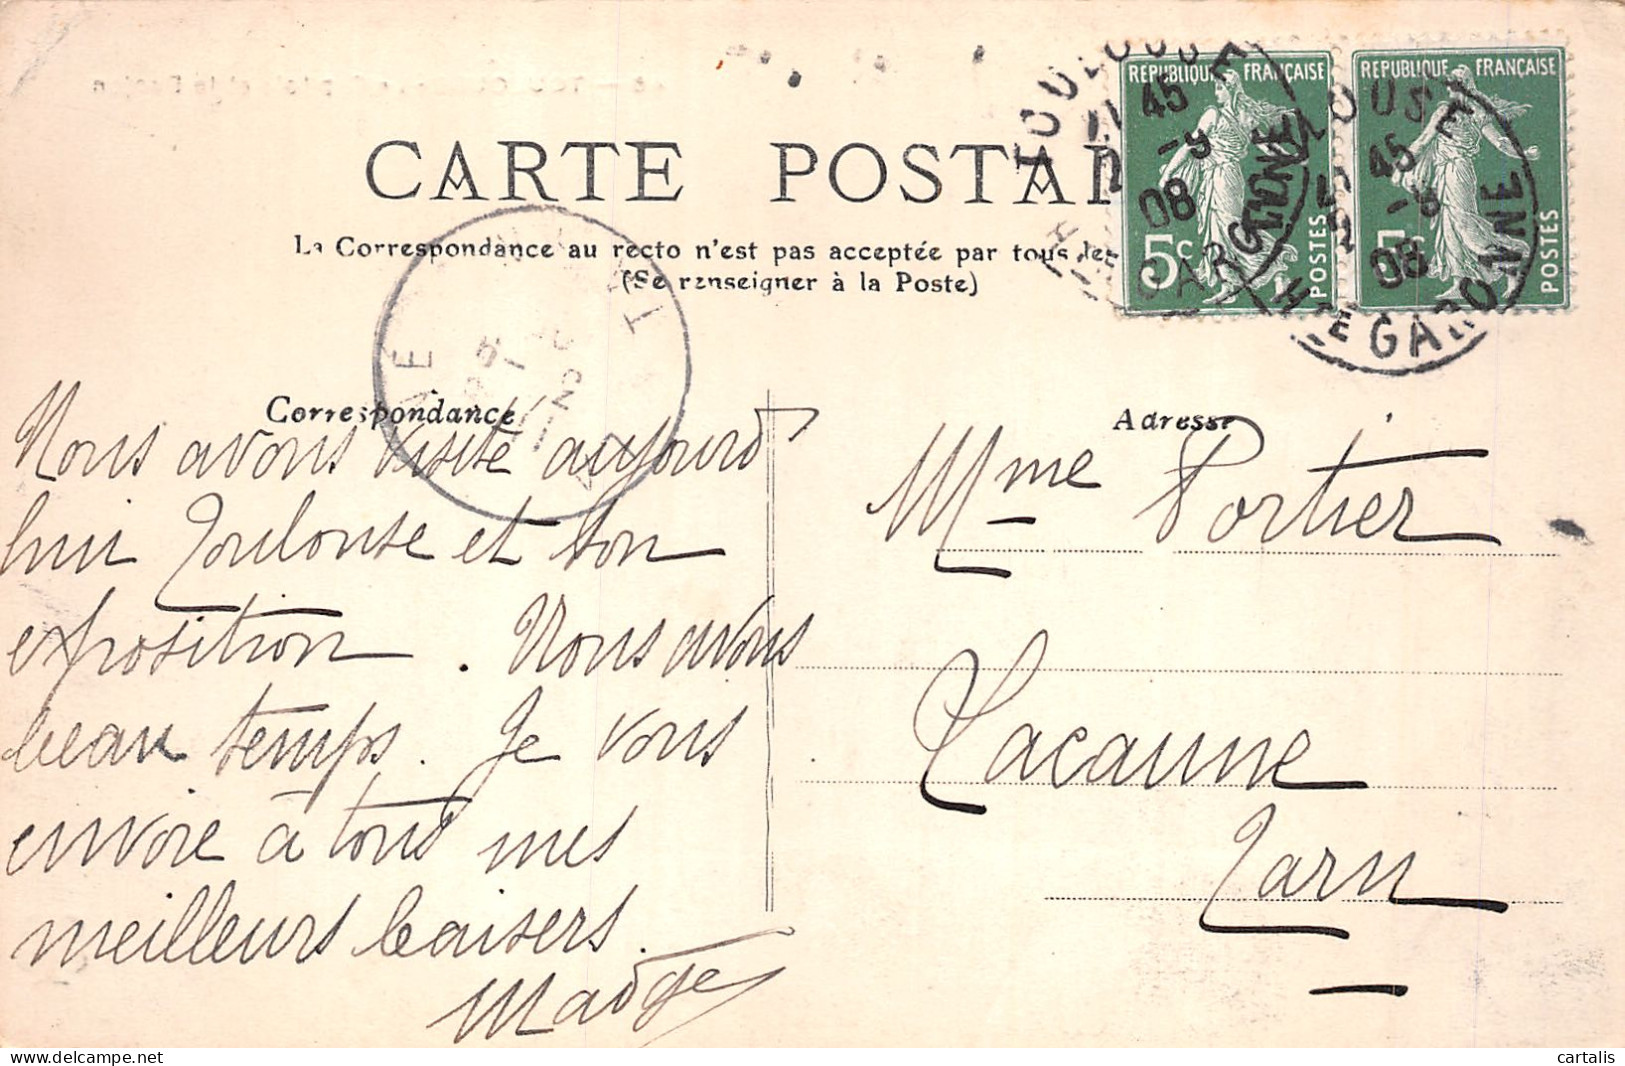 CARTE POSTA
La Correspondance au recto n'est pas acceptée par tous les
(Se renseigner à la Poste)
REPUBLIQUE FRANÇAISE
5c
POSTES
REPUBLIQUE FRANÇAISE
5c
POSTES
TOULOUSE
45
08
GARONNE
OUSE
45
08
Hte GARONNE
Correspondance
Adresse
Nous avons visité aujourd
hui Toulouse et son
exposition. Nous avons
beau temps. Je vous
envoie à tous mes
meilleurs baisers.
Madge
Mme Portier
Lacaune
Tarn
cartalis